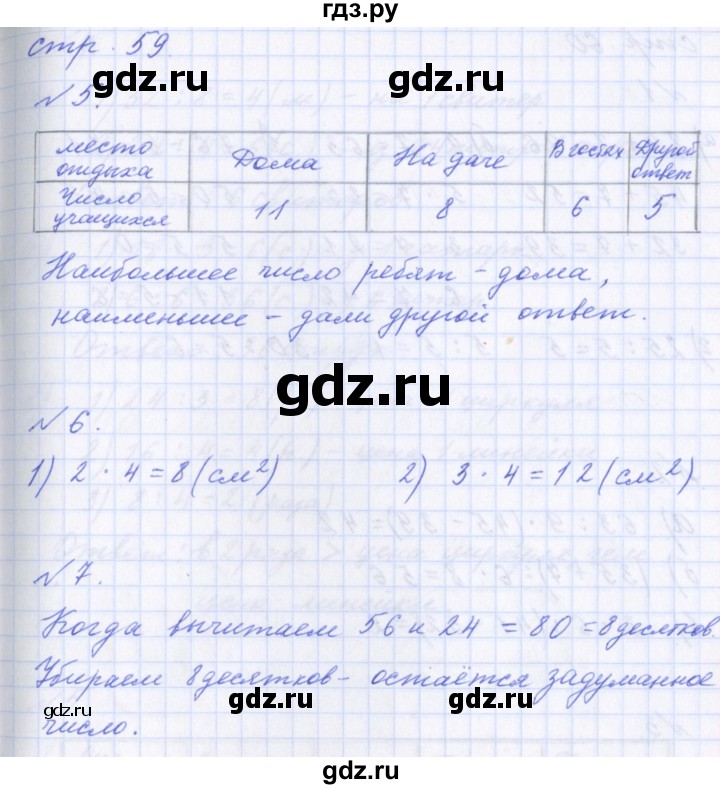 гдз.ру
стр. 59.
gdz.ru
gdz.ru
№ 5.
место отдыха Дома На даче В гостях Другой ответ
Число учащихся 11 8 6 5
Наибольшее число ребят - дома,
наименьшее - дали другой ответ.
gdz.ru
№ 6.
1) 2 · 4 = 8 (см²) 2) 3 · 4 = 12 (см²)
gdz.ru
gdz.ru
№ 7.
Когда вычитаем 56 и 24 = 80 = 8 десятков.
Убираем 8 десятков - остаётся задуманное
gdz.ru
gdz.ru
gdz.ru
число.
gdz.ru